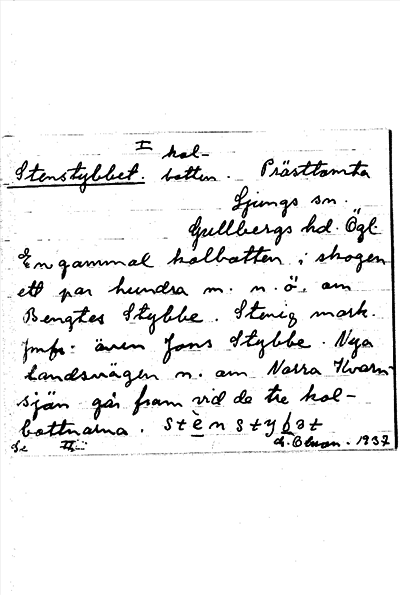 I kol-
Stenstybbet. botten. Prästtomta
Ljungs sn.
Gullbergs hd. Ögl.
En gammal kolbotten i skogen
ett par hundra m. n. ö. om
Bengtes Stybbe. Stenig mark.
Jmfr. även Jons Stybbe. Nya
landsvägen n. om Norra Kvarn-
sjön går fram vid de tre kol-
bottnarna. stènstybət
Se II L. Olson. 1937